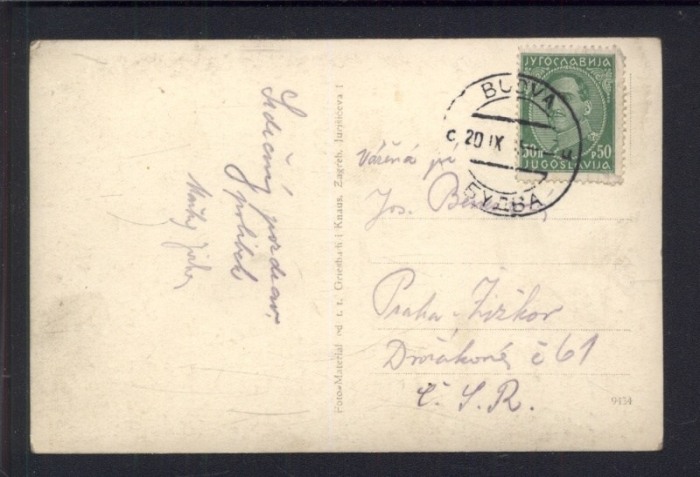 Srdečný pozdrav
polibek
Foto-Materijal od t. t. Griesbach i Knaus, Zagreb, Jurjišićeva 1
ЈУГОСЛАВИЈА
50 п p 50
JUGOSLAVIJA
BUDVA
20 IX
БУДВА
Vážená pí
Jos.
Praha-Žižkov
Dvořákova č 61
Č. S. R.
9434